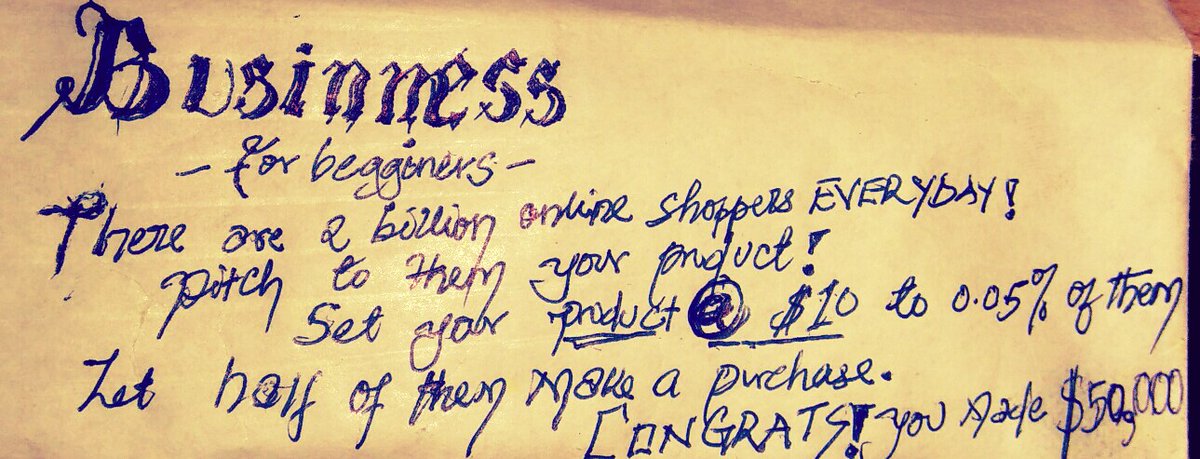 Businness
- for begginers -
There are 2 billion online shoppers EVERYDAY!
pitch to them your product!
Set your product @ $10 to 0.05% of them
Let half of them make a purchase.
CONGRATS! you made $50,000